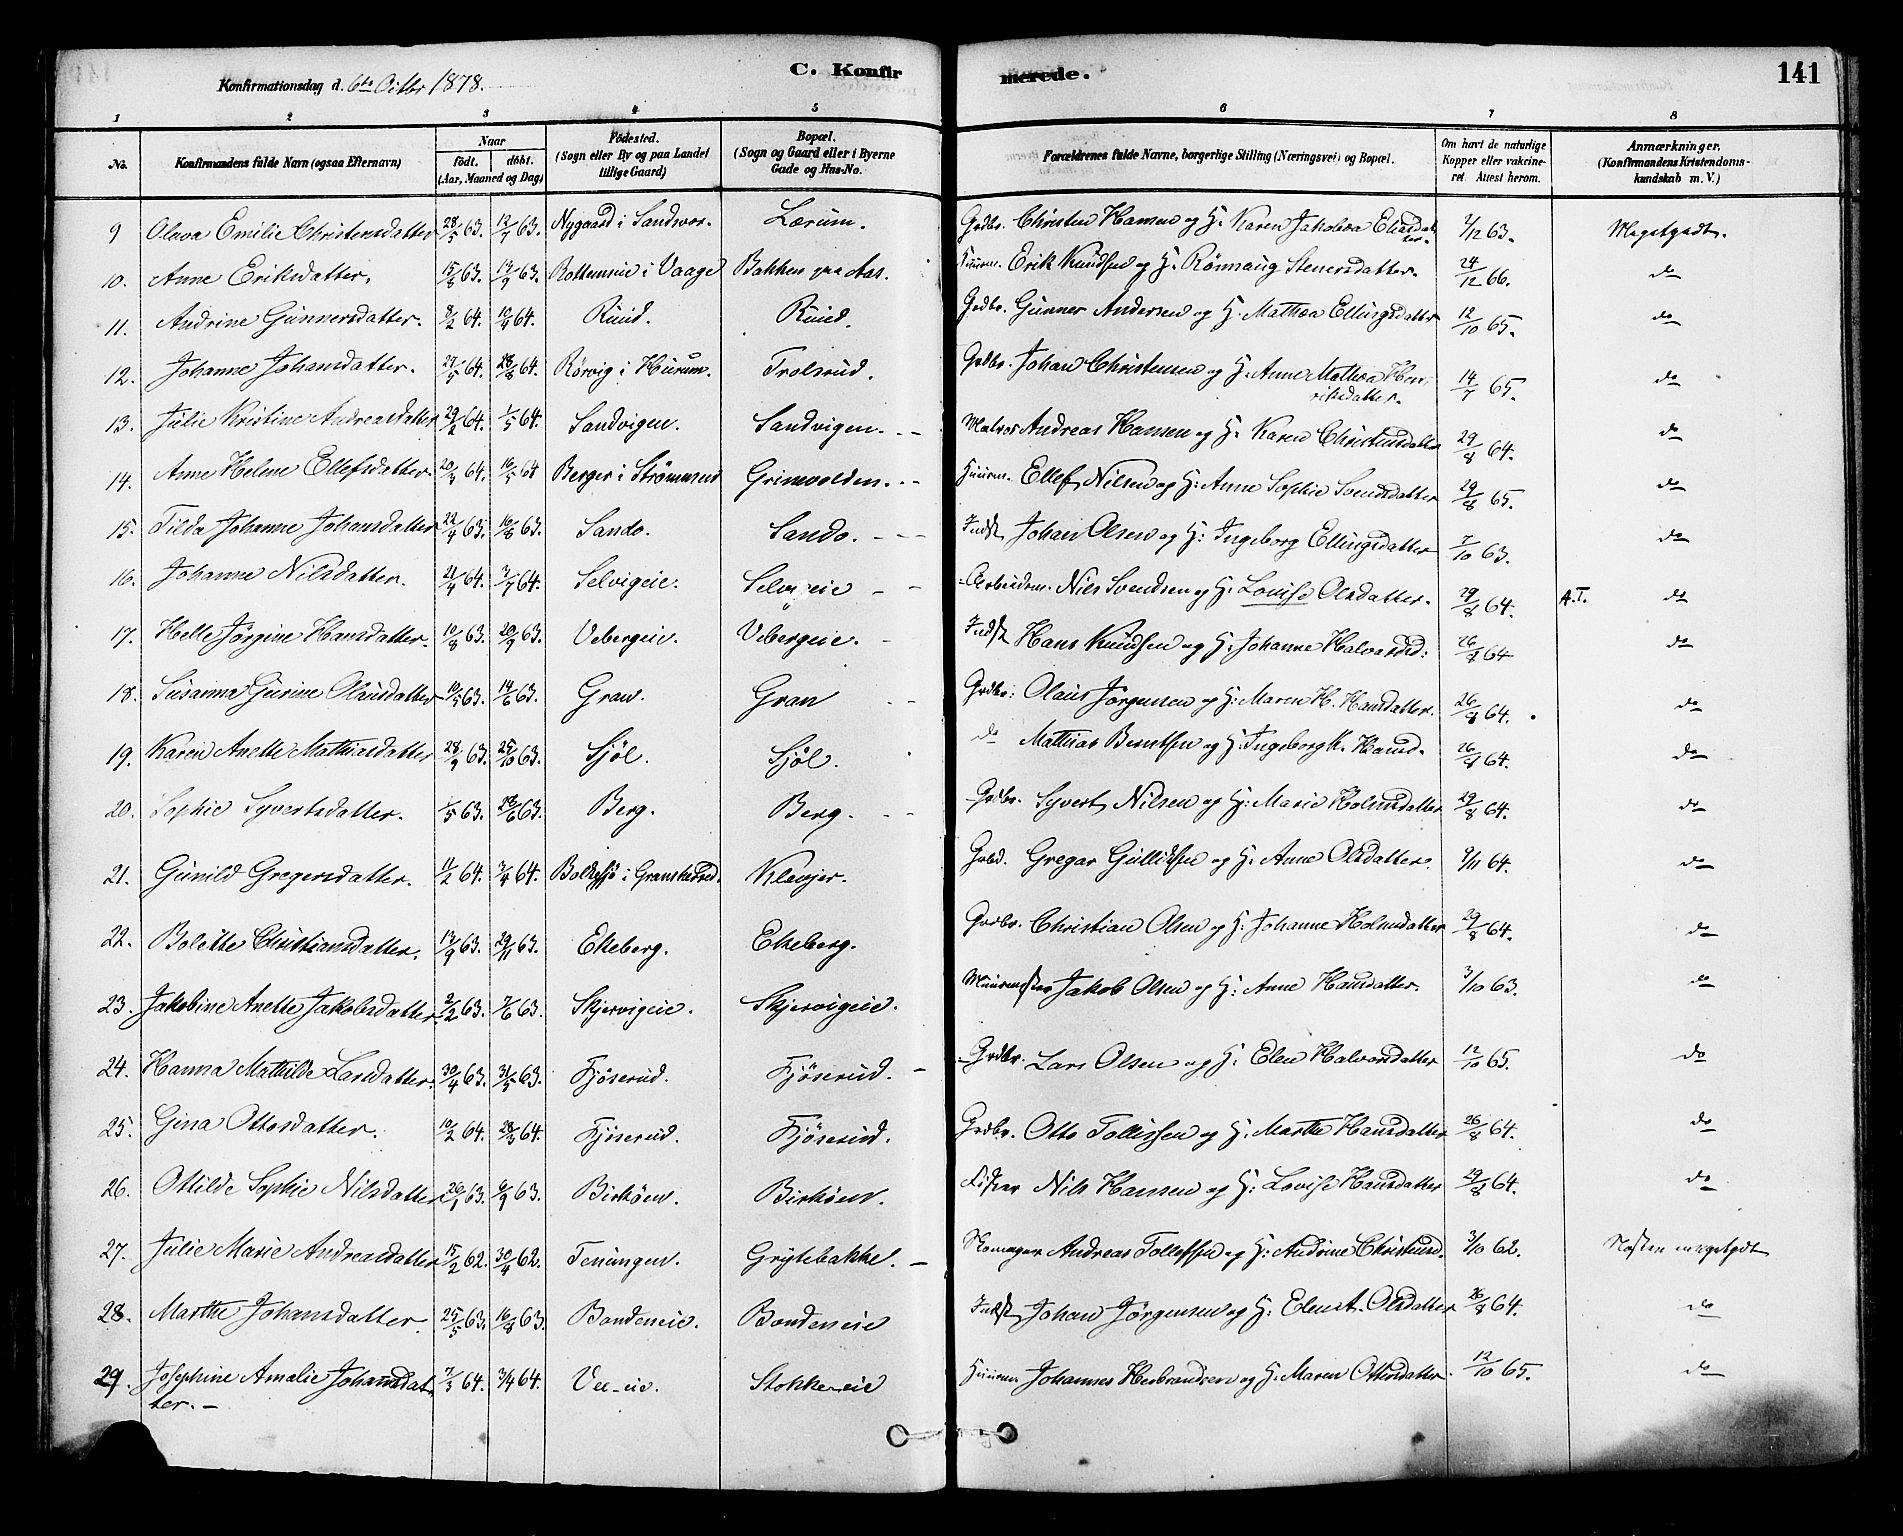 Konfirmationsdag d. 6te Octbr 1878.
C. Konfirmerede.
141
1 2 3 4 5 6 7 8
No. Konfirmandens fulde Navn (ogsaa Efternavn) Naar født. døbt. (Aar, Maaned og Dag) Fødested. (Sogn eller By og paa Landet tillige Gaard) Bopæl. (Sogn og Gaard eller i Byerne Gade og Hus-No. Forældrenes fulde Navne, borgerlige Stilling (Næringsvei) og Bopæl. Om havt de naturlige Kopper eller vakcineret. Attest herom. Anmærkninger. (Konfirmandens Kristendomskundskab m. V.)
9 Olava Emilie Christensdatter 28/5 63. 12/7 63. Nygaard i Sandsvær. Lærum. Grdbr. Christen Hansen og H. Karen Jakobæa Eliasdatter. 2/12 63. Megetgodt.
10. Anne Eriksdatter. 15/8 63. 13/9 63. Rottemseie i Vaage Bakken paa Aas. Huusm. Erik Knudsen og H. Rönnaug Stenersdatter. 24/12 66. do
11. Andrine Gunnersdatter. 8/2 64. 10/4 64. Ruud. Ruud. Grdbr. Gunner Andersen og H. Mathea Ellingsdatter 12/10 65. do
12. Johanne Johansdatter. 27/5 64. 28/8 64. Rörvig i Hurum. Trolsrud. Grdbr. Johan Christensen og H. Anne Mathea Henriksdatter. 14/7 65. do
13. Julie Kristine Andreasdatter 29/2 64. 1/5 64. Sandvigen. Sandvigen. Matros Andreas Hansen og H. Karen Christensdatter 29/8 64. do
14. Anne Helene Ellefsdatter. 20/3 64. 16/5 64 Berger i Strømmen Grimsolden. Huusm. Ellef Nilsen og H. Anne Sophie Svendsdatter 29/8 65. do
15. Tilda Johanne Johansdatter 22/4 63. 16/8 63. Sando. Sando. Indst Johan Olsen og H: Ingeborg Ellingsdatter 7/10 63. do
16. Johanne Nilsdatter. 21/4 64. 3/7 64. Selvigeie. Selvigeie Arbeidsm. Nils Svendsen og H. Lovise Olsdatter. 29/8 64. A.T. do
17. Helle Jörgine Hansdatter. 10/8 63. 20/9 63. Vebergeie. Vebergeie. Indst Hans Knudsen og H. Johanne Halvorsd: 26/8 64 do
18. Susanna Gurine Olausdatter 10/5 63. 14/6 63. Gran. Gran Grdbr: Olaus Jörgensen og H: Maren H. Hansdatter. 26/8 64. do
19. Karen Anette Mathiasdatter 28/9 63. 25/10 63. Sjöl. Sjöl. do Mathias Berntsen og H. Ingeborg K. Hansd. 26/8 64. do
20. Sophie Syvertsdatter. 1/5 63. 28/6 63. Berg. Berg. Grdbr. Syvert Nilsen og H: Marie Holmsdatter 29/8 64. do
21. Gunild Gregersdatter. 11/2 64. 3/4 64. Bolkesjö i Gransherred. Klevjer. Grbd. Gregar Gulliksen og H. Anne Olsdatter. 9/11 64. do
22. Bolette Christiansdatter. 13/9 63. 29/11 63. Ekeberg. Ekeberg. Grdbr. Christian Olsen og H. Johanne Holmsdatter 29/8 64. do
23. Jakobine Anette Jakobsdatter. 2/2 63. 7/6 63. Skjervigeie. Skjervigeie. Muurmester Jakob Olsen og H: Anne Hansdatter. 3/10 63. do
24. Hanna Mathilde Larsdatter. 30/4 63. 31/5 63. Fjöserud. Fjöserud. Grdbr. Lars Olsen og H. Elen Halvorsdatter 12/10 65. do
25. Gina Ottosdatter. 10/2 64. 28/3 64. Fjöserud. Fjöserud. Grdbr. Otto Tollefsen og H. Marthe Hansdatter 26/8 64. do
26. Ottilde Sophie Nilsdatter 26/1 63. 6/9 63. Birköen. Birköen. Fisker Nils Hansen og H: Lovise Hansdatter 29/8 64. do
27. Julie Marie Andreasdatter 15/2 62. 30/4 62. Teningen. Grytebakke. Skomager Andreas Tollefsen og H: Andrine Christensd. 3/10 62. Næsten megetgdt
28. Marthe Johansdatter. 25/5 63. 16/8 63. Bondeneie. Bondeneie Indst Johan Jörgensen og H: Elen A. Olsdatter 26/8 64. do
29. Josephine Amalie Johannesdatter. 7/3 64. 3/4 64. Vee-eie. Stokke-eie Huusm Johannes Herbrandsen og H. Maren Ottersdatter. 12/10 65. do